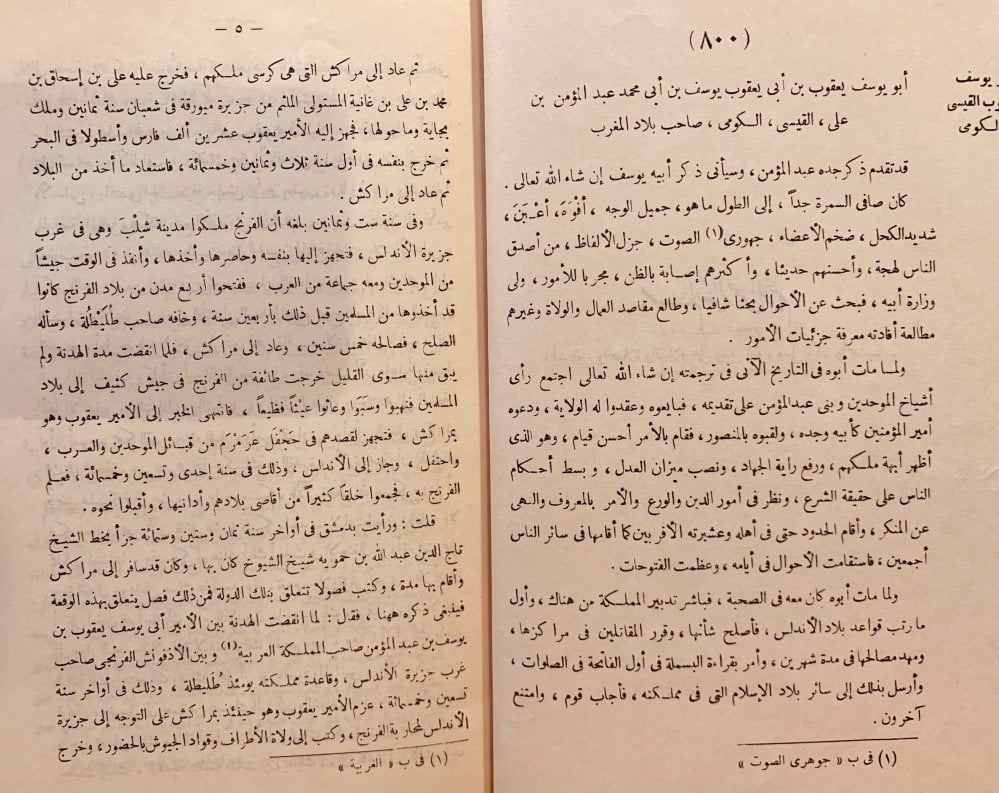 (٨٠٠)
أبو يوسف يعقوب بن أبى يعقوب يوسف بن أبى محمد عبد المؤمن بن
على ، القيسى ، الكومى ، صاحب بلاد المغرب
يوسف
القيسى
الكومى
قد تقدم ذكر جده عبد المؤمن ، وسيأتى ذكر أبيه يوسف إن شاء الله تعالى .
كان صافى السمرة جداً ، إلى الطول ما هو ، جميل الوجه ، أَفْوَهَ ، أَعْيَنَ ،
شديد الكحل ، ضخم الأعضاء ، جهورى (١) الصوت ، جزل الألفاظ ، من أصدق
الناس لهجة ، وأحسنهم حديثا ، وأكثرهم إصابة بالظن ، مجربا للأمور ، ولى
وزارة أبيه ، فبحث عن الأحوال بحثا شافيا ، وطالع مقاصد العمال والولاة وغيرهم
مطالعة أفادته معرفة جزئيات الأمور .
ولما مات أبوه فى التاريخ الآتى فى ترجمته إن شاء الله تعالى اجتمع رأى
أشياخ الموحدين وبنى عبد المؤمن على تقديمه ، فبايعوه وعقدوا له الولاية ، ودعوه
أمير المؤمنين كأبيه وجده ، ولقبوه بالمنصور ، فقام بالأمر أحسن قيام ، وهو الذى
أظهر أبهة ملكهم ، ورفع راية الجهاد ، ونصب ميزان العدل ، وبسط أحكام
الناس على حقيقة الشرع ، ونظر فى أمور الدين والورع والأمر بالمعروف والنهى
عن المنكر ، وأقام الحدود حتى فى أهله وعشيرته الأقربين كما أقامها فى سائر الناس
أجمعين ، فاستقامت الأحوال فى أيامه ، وعظمت الفتوحات .
ولما مات أبوه كان معه فى الصحبة ، فباشر تدبير المملكة من هناك ، وأول
ما رتب قواعد بلاد الأندلس ، فأصلح شأنها ، وقرر المقاتلين فى مراكزها ،
ومهد مصالحها فى مدة شهرين ، وأمر بقراءة البسملة فى أول الفاتحة فى الصلوات ،
وأرسل بذلك إلى سائر بلاد الإسلام التى فى مملكته ، فأجاب قوم ، وامتنع
آخرون .
(١) فى ب « جوهرى الصوت »
— ٥ —
ثم عاد إلى مراكش التى هى كرسى ملكهم ، فخرج عليه على بن إسحاق بن
محمد بن على بن غانية المستولى الملثم من جزيرة ميورقة فى شعبان سنة ثمانين وملك
بجاية وما حولها ، فجهز إليه الأمير يعقوب عشرين ألف فارس وأسطولا فى البحر
ثم خرج بنفسه فى أول سنة ثلاث وثمانين وخمسمائة ، فاستعاد ما أخذ من البلاد
ثم عاد إلى مراكش .
وفى سنة ست وثمانين بلغه أن الفرنج ملكوا مدينة شِلْبَ وهى فى غرب
جزيرة الأندلس ، فتجهز إليها بنفسه وحاصرها وأخذها ، وأنفذ فى الوقت جيشاً
من الموحدين ومعه جماعة من العرب ، ففتحوا أربع مدن من بلاد الفرنج كانوا
قد أخذوها من المسلمين قبل ذلك بأربعين سنة ، وخافه صاحب طُلَيْطُلة ، وسأله
الصلح ، فصالحه خمس سنين ، وعاد إلى مراكش ، فلما انقضت مدة الهدنة ولم
يبق منها سوى القليل خرجت طائفة من الفرنج فى جيش كثيف إلى بلاد
المسلمين فنهبوا وسبَوا وعاثوا عيثاً فظيعاً ، فانتهى الخبر إلى الأمير يعقوب وهو
بمراكش ، فتجهز لقصدهم فى جَحْفل عَرَمْرم من قبائل الموحدين والعرب ،
واحتفل ، وجاز إلى الأندلس ، وذلك فى سنة إحدى وتسعين وخمسمائة ، فعلم
الفرنج به ، فجمعوا خلقاً كثيراً من أقاصى بلادهم وأدانيها ، وأقبلوا نحوه .
قلت : ورأيت بدمشق فى أواخر سنة ثمان وستين وستمائة جزأ بخط الشيخ
تاج الدين عبد الله بن حمويه شيخ الشيوخ كان بها ، وكان قد سافر إلى مراكش
وأقام بها مدة ، وكتب فصولا تتعلق بتلك الدولة فمن ذلك فصل يتعلق بهذه الوقعة
فينبغى ذكره ههنا ، فقال : لما انقضت الهدنة بين الأمير أبى يوسف يعقوب بن
يوسف بن عبد المؤمن صاحب المملكة العربية (١) وبين الأذفونش الفرنجى صاحب
غرب جزيرة الأندلس ، وقاعدة مملكته يومئذ طُليطلة ، وذلك فى أواخر سنة
تسعين وخمسمائة ، عزم الأمير يعقوب وهو حينئذ بمراكش على التوجه إلى جزيرة
الأندلس لمحاربة الفرنج ، وكتب إلى ولاة الأطراف وقواد الجيوش بالحضور ، وخرج
(١) فى ب « الغربية »